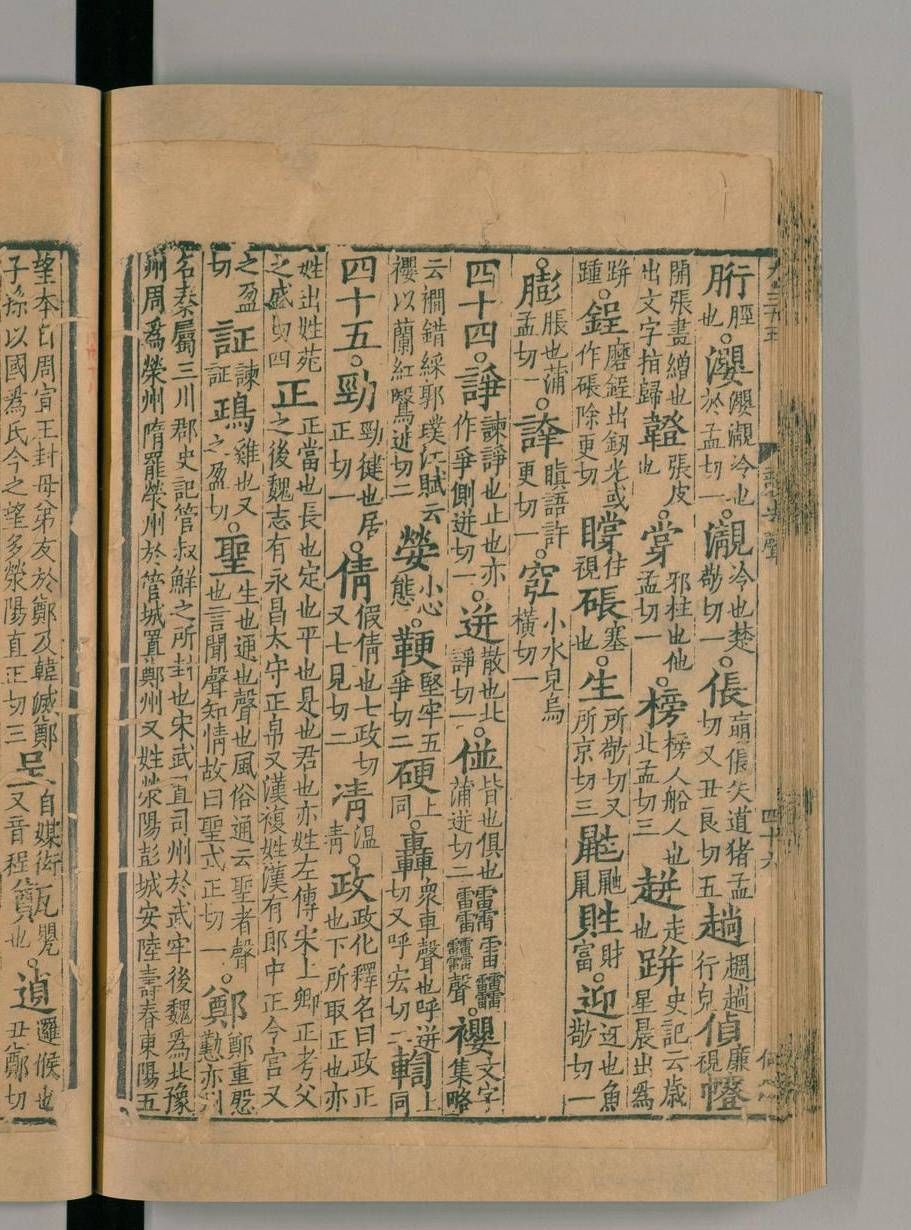 胻脛也。瀴瀴瀙冷也於孟切一。瀙冷也楚敬切一。倀倀失道猪孟切又丑良切五趟趟行皃偵廉視
開張畫繒也出文字指歸張皮也。牚邪柱也他孟切一。榜榜人船人也北孟切三走也跰史記云歲星晨出為
跰踵。鋥磨鋥出釰光或作除更切瞠住視塞也。生所敬切又所京切三鼪鼬鼠貹財富。迎迓也魚敬切一
膨脹也蒲孟切一。瞋語許更切一。小水皃烏橫切一
四十四。諍諫諍也止也亦作爭側迸切一。迸散也北諍切一。皆也俱也蒲迸切二䨻䨻聲文字集略
云襉錯綵郭璞江賦云以蘭紅鷖迸切二嫈小心態。鞕堅牢五爭切二硬上同。轟眾車聲也呼迸切又呼宏切二輷上同
四十五。勁勁健也居正切一。倩假倩也七政切又七見切二凊溫凊。政政化釋名曰政正也下所取正也亦
姓出姓苑之盛切四正正當也長也定也平也是也君也亦姓左傳宋上卿正考父之後魏志有永昌太守正帛又漢複姓漢有郎中正令宮又
之盈切証諫証鴊雞也又之盈切。聖生也通也聲也風俗通云聖者聲也言聞聲知情故曰聖式正切一。鄭鄭重慇懃亦州
名秦屬三川郡史記管叔鮮之所封也宋武置司州於武牢後魏為北豫州周為滎州隋罷滎州於管城置鄭州又姓滎陽彭城安陸壽春東陽五
望本自周宣王封母弟友於鄭及韓滅鄭子孫以國為氏今之望多滎陽直正切三自媒衒又音程瓦甖也。遉邏候也丑鄭切
四十六